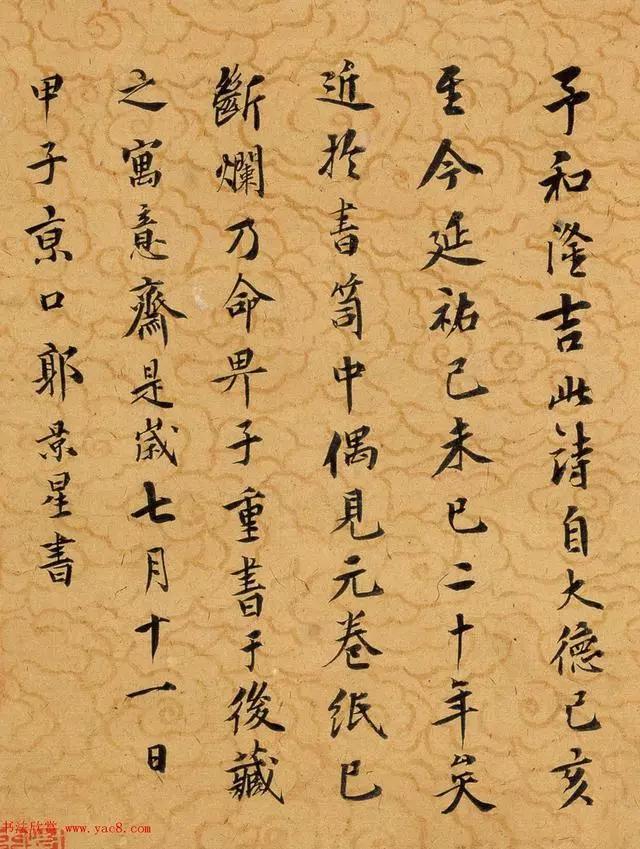 予和隆吉此詩自大德己亥
至今延祐己未已二十年矣
近於書笥中偶見元卷紙已
斷爛乃命畀子重書于後藏
之寓意齋是歲七月十一日
甲子京口郭景星書
书法欣赏 www.yac8.com